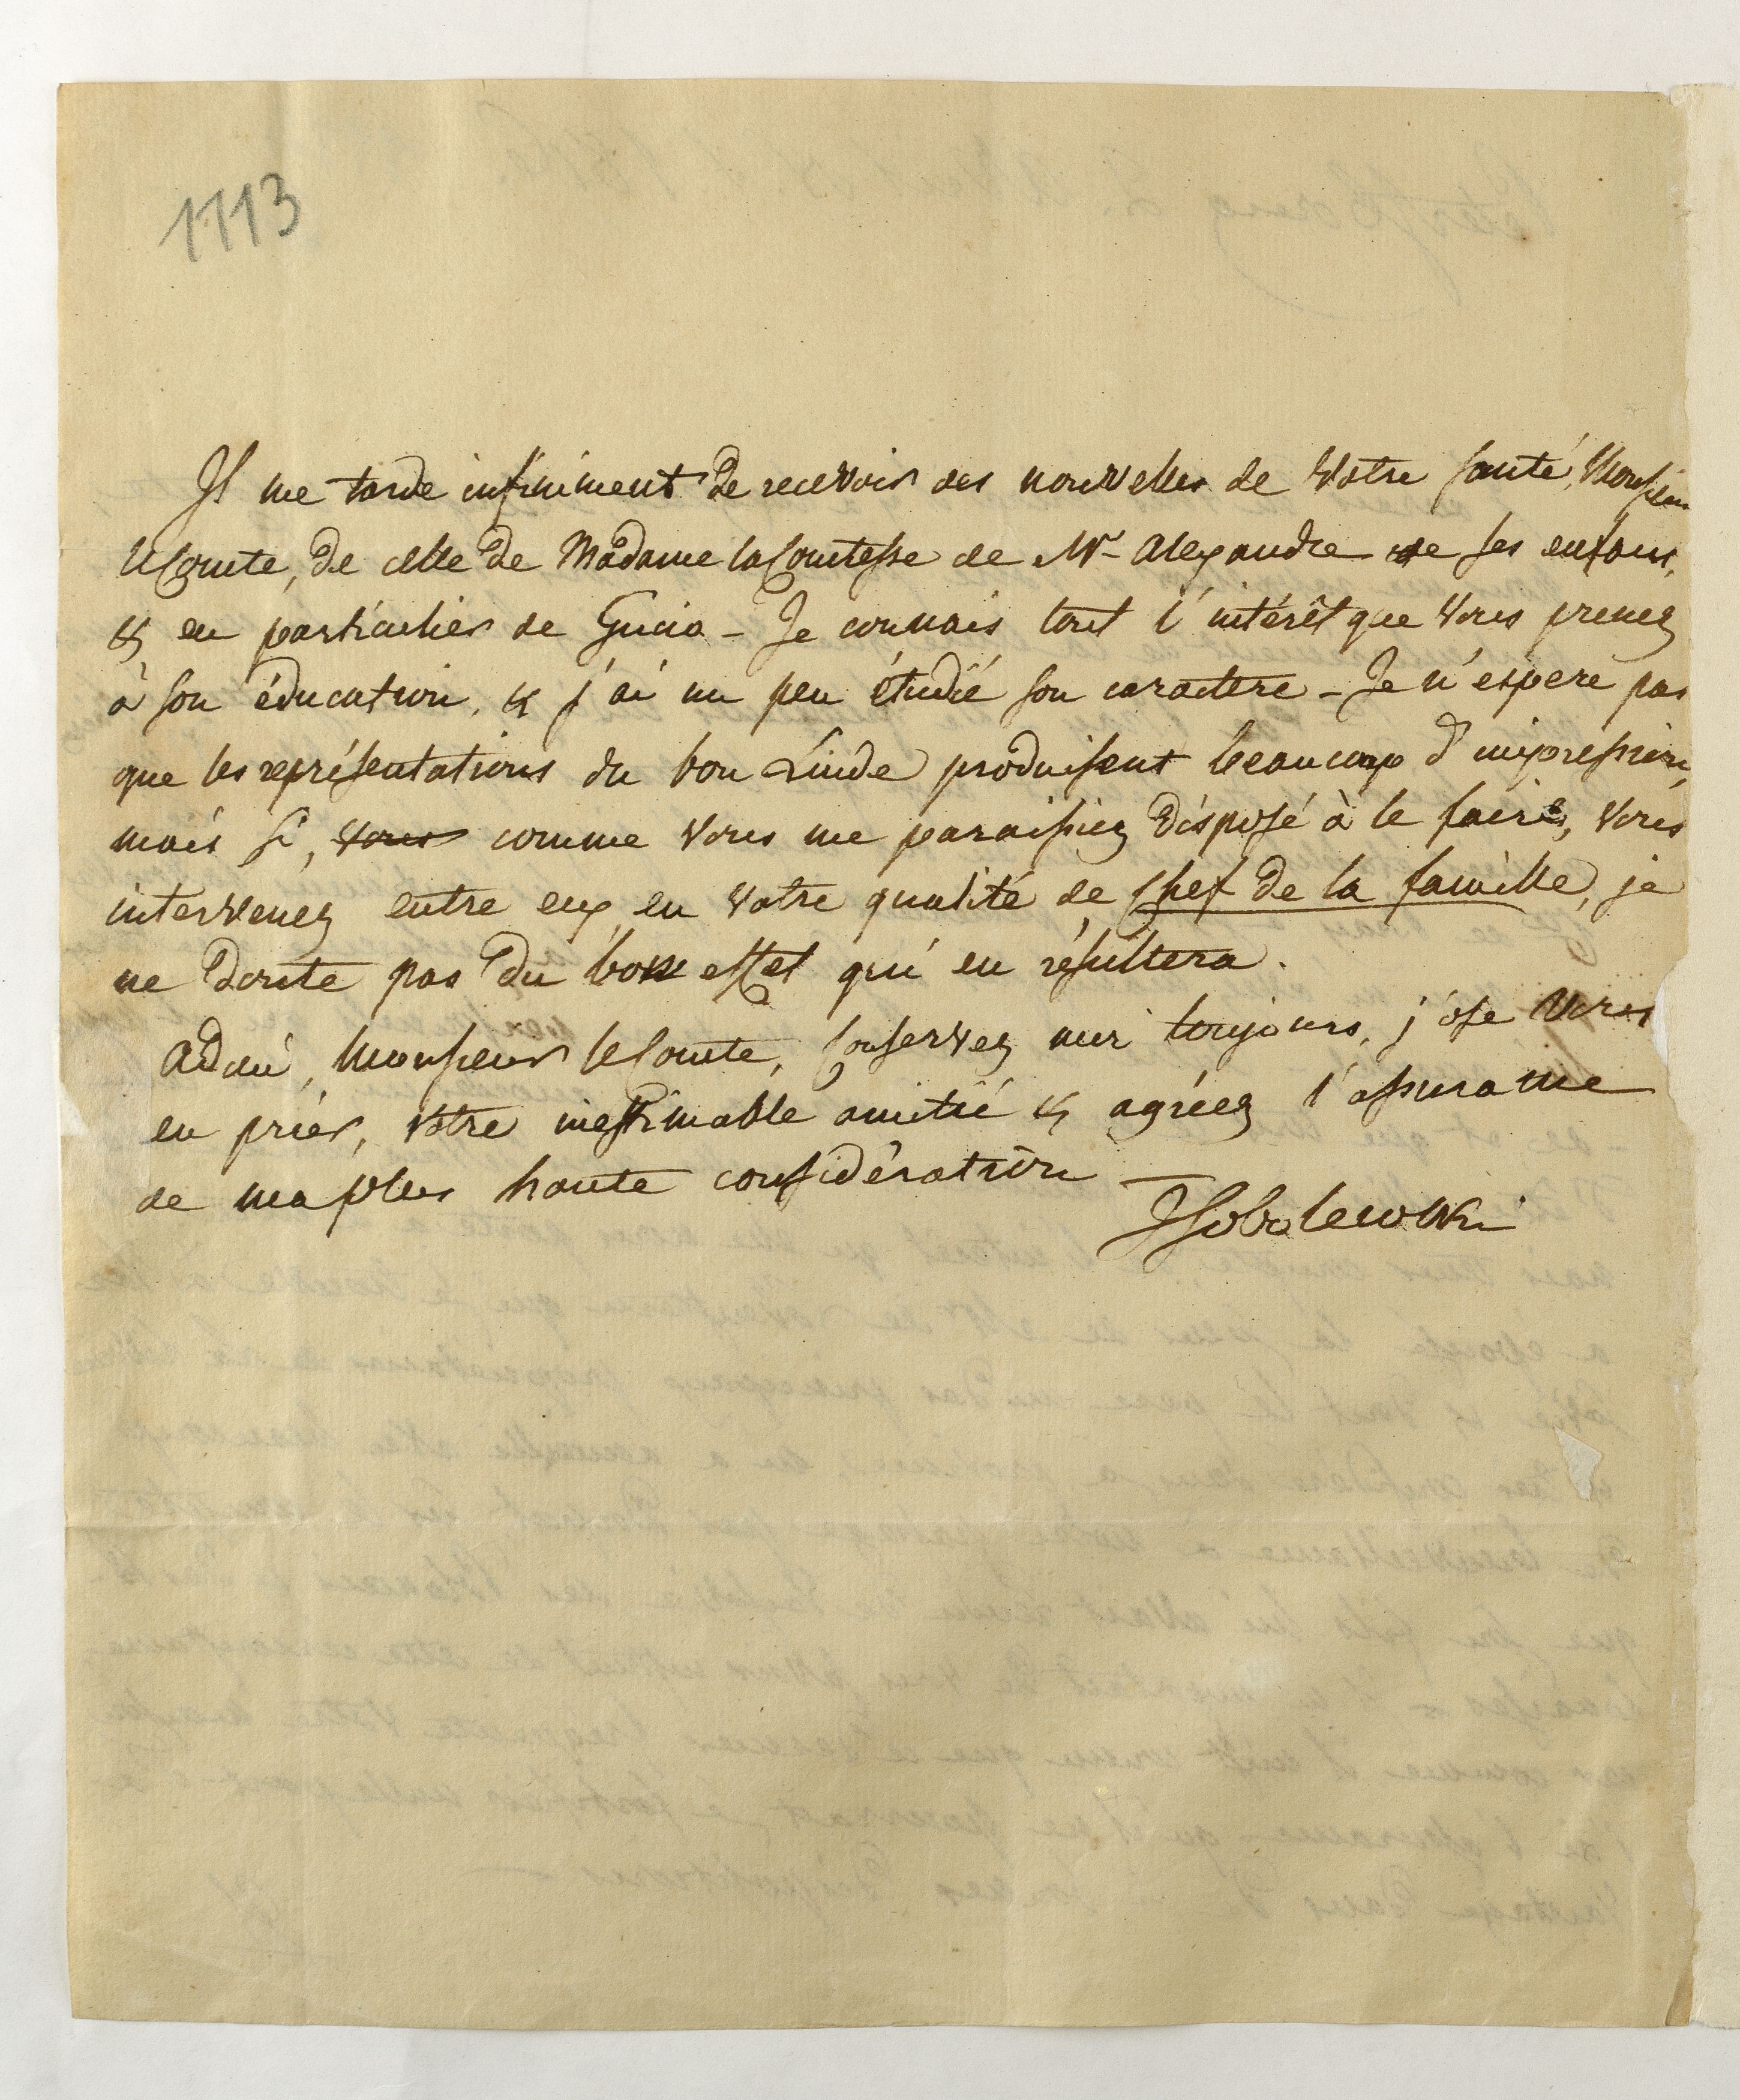 1113
Il me tarde infiniment de recevoir des nouvelles de Votre santé, Monsieur
le Comte, de celle de Madame la Comtesse de Mr Alexandre de ses enfans,
& en particulier de Gucio - Je connais tout l'intérêt que Vous prenez
à son éducation, & j'ai un peu étudié son caractere - Je n'espere pas
que les représentations du bon Linde produisent beaucoup d'impression,
mais si, Vous comme Vous me paraissiez disposé à le faire, Vous
intervenez entre eux en Votre qualité de chef de la famille, je
ne doute pas du bon effet qui en résultera.
Adieu, Monsieur le Comte, Conservez moi toujours, j'ose Vous
en prier, Votre inestimable amitié & agréez l'assurance
de ma plus haute considération —
JSobolewski